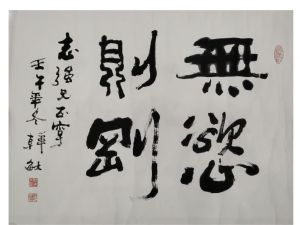 無慾
則剛
志強兄正寫
壬午年冬韓敏